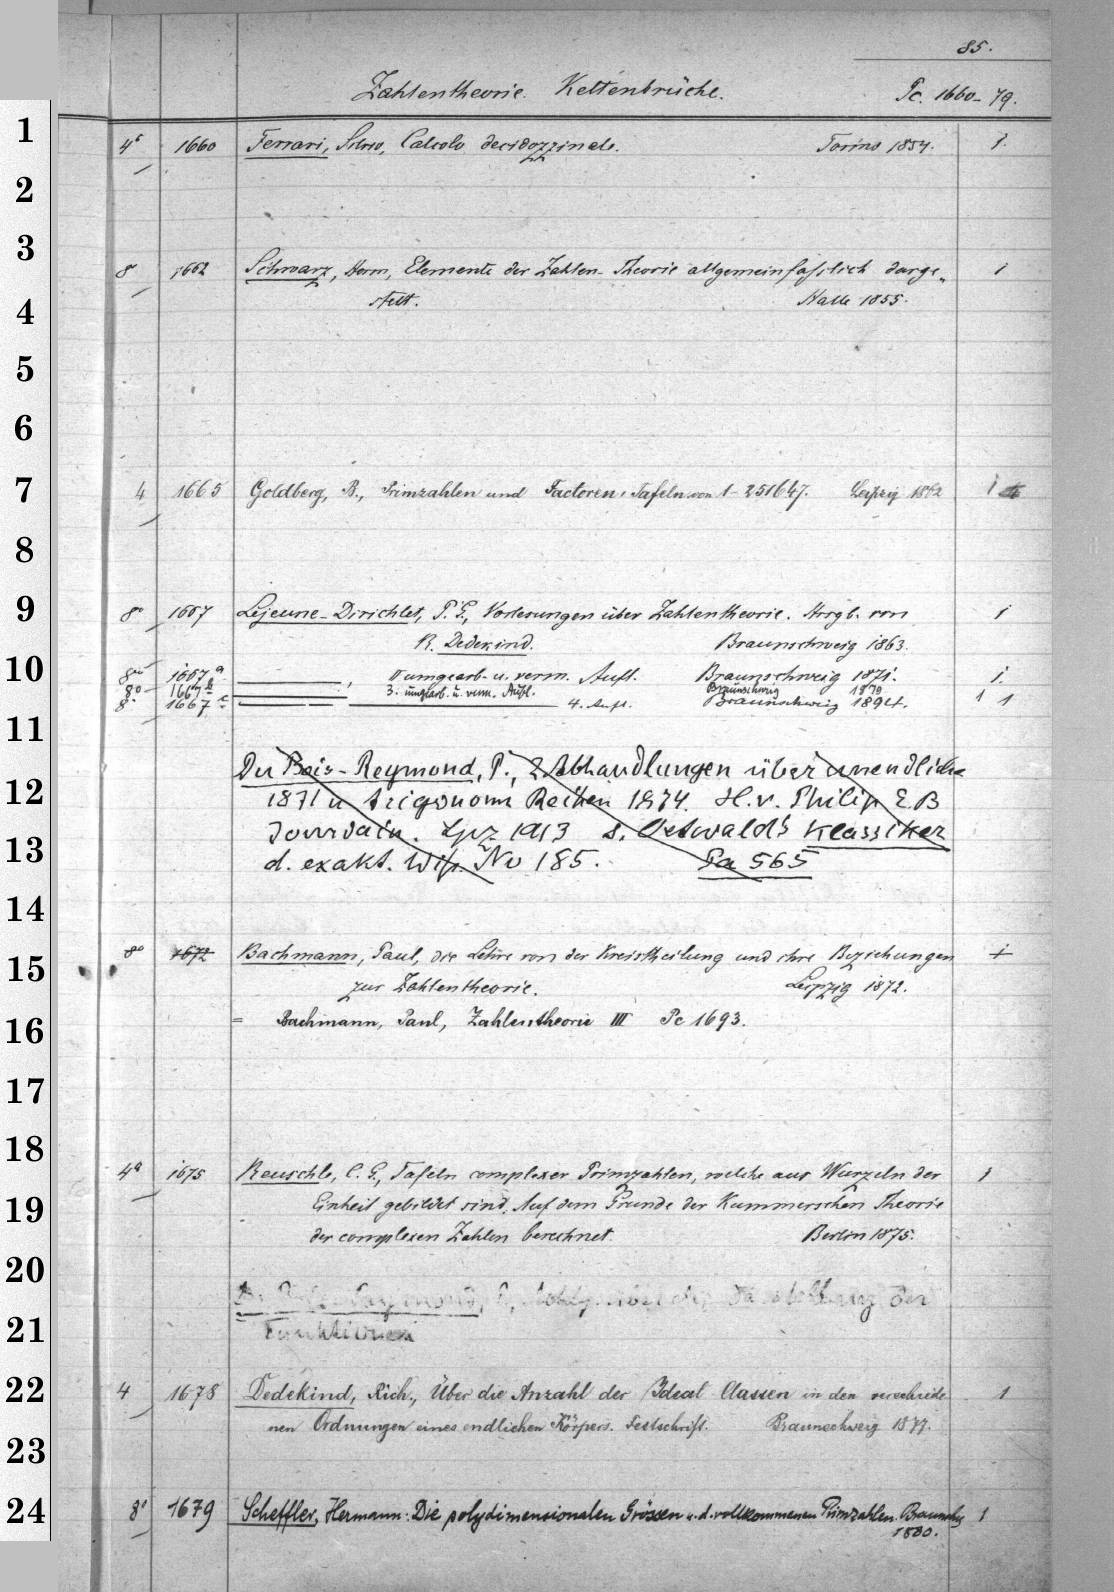 85.
Zahlentheorie. Kettenbrüche. Pc. 1660-79.
1
4° 1660 Ferrari, Silvio, Calcolo decidozzinale. Torino 1854. 1.
2
3
8 1662 Schwarz, Herm, Elemente der Zahlen-Theorie allgemeinfaßlich darge- 1
stellt. Halle 1855.
4
5
6
7
4 1665 Goldberg, B., Primzahlen und Factoren-Tafeln von 1-251647. Leipzig 1862 1
8
9
8° 1667 Lejeune-Dirichlet, P. G., Vorlesungen über Zahlentheorie. Hrsgb. von 1
R. Dedekind. Braunschweig 1863.
10
8° 1667a , II umgearb. u. verm. Aufl. Braunschweig 1871. 1.
8° 1667b 3. umgearb. u. verm. Aufl. Braunschweig 1879 1
8° 1667c 4. Aufl. Braunschweig 1894. 1
11
Du Bois-Reymond, P., 2 Abhandlungen über unendliche
12
1871 u trigonom Reihen 1874. H. v. Philip E. B
Jourdain. Lpz 1913 s. Ostwald's Klassiker
13
d. exakt. Wiss. No 185. Pa 565
14
15
8° 1672 Bachmann, Paul, die Lehre von der Kreistheilung und ihre Beziehungen 1
zur Zahlentheorie. Leipzig 1872.
16
= Bachmann, Paul, Zahlentheorie III Pc 1693.
17
18
4° 1675 Reuschle, C. G., Tafeln complexer Primzahlen, welche aus Wurzeln der 1
19
Einheit gebildet sind. Auf dem Grunde der Kummerschen Theorie
der complexen Zahlen berechnet. Berlin 1875.
20
Du Bois-Reymond, P., der
21
Funktionen
22
4 1678 Dedekind, Rich., Über die Anzahl der Ideal Classen in den verschiede 1
nen Ordnungen eines endlichen Körpers. Festschrift. Braunschweig 1877.
23
24
8° 1679 Scheffler, Hermann: Die polydimensionalen Grössen u. d. vollkommenen Primzahlen. Braunschw 1
1880.